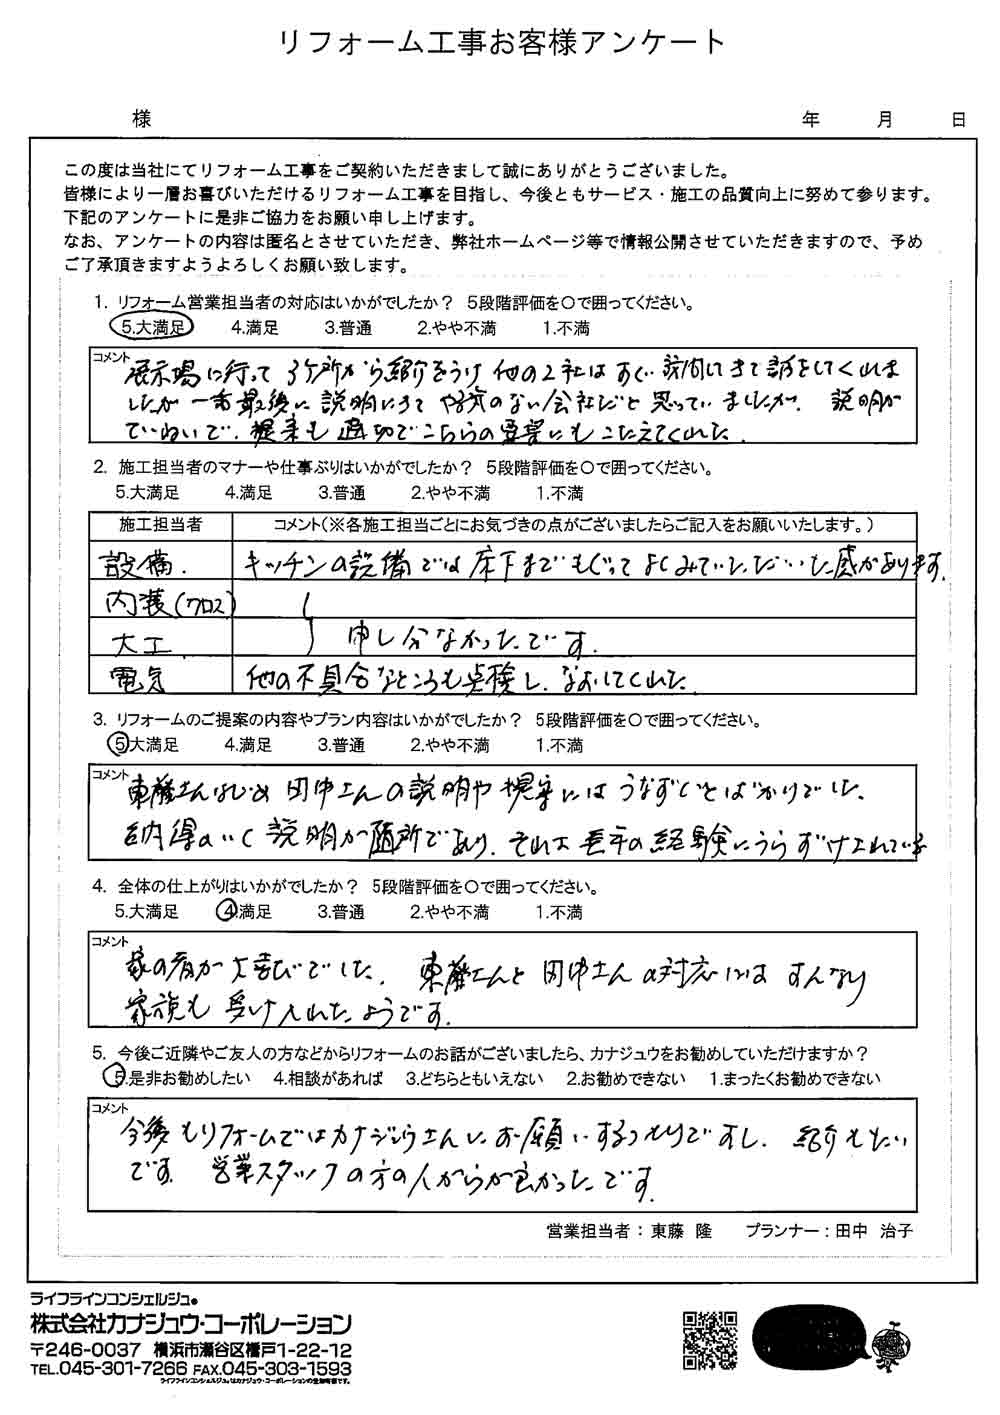 リフォーム工事お客様アンケート
様 年 月 日
この度は当社にてリフォーム工事をご契約いただきまして誠にありがとうございました。
皆様により一層お喜びいただけるリフォーム工事を目指し、今後ともサービス・施工の品質向上に努めて参ります。
下記のアンケートに是非ご協力をお願い申し上げます。
なお、アンケートの内容は匿名とさせていただき、弊社ホームページ等で情報公開させていただきますので、予め
ご了承頂きますようよろしくお願い致します。
1. リフォーム営業担当者の対応はいかがでしたか? 5段階評価を○で囲ってください。
5.大満足 4.満足 3.普通 2.やや不満 1.不満
コメント
展示場に行って 3ケ所から紹介をうけ 他の2社はすぐ訪問してきて話をしてくれま
したが 一番最後に説明にきて やる気のない会社だと思っていましたが、説明が
ていねいで、提案も適切でこちらの要望にもこたえてくれた。
2. 施工担当者のマナーや仕事ぶりはいかがでしたか? 5段階評価を○で囲ってください。
5.大満足 4.満足 3.普通 2.やや不満 1.不満
施工担当者 コメント(※各施工担当ごとにお気づきの点がございましたらご記入をお願いいたします。)
設備. キッチンの設備では床下までもぐってよくみていただいた感があります。
内装(クロス)
大工. 申し分なかったです。
電気 他の不具合なところも点検し、なおしてくれた.
3. リフォームのご提案の内容やプラン内容はいかがでしたか? 5段階評価を○で囲ってください。
5.大満足 4.満足 3.普通 2.やや不満 1.不満
コメント
東藤さんはじめ 田中さんの説明や提案にはうなずくことばかりでした。
納得のいく説明が随所であり、それは長年の経験にうらずけされている
4. 全体の仕上がりはいかがでしたか? 5段階評価を○で囲ってください。
5.大満足 4.満足 3.普通 2.やや不満 1.不満
コメント
家の者が大喜びでした。東藤さんと田中さんの対応にはすんなり
家族も受け入れたようです。
5. 今後ご近隣やご友人の方などからリフォームのお話がございましたら、カナジュウをお勧めしていただけますか?
5.是非お勧めしたい 4.相談があれば 3.どちらともいえない 2.お勧めできない 1.まったくお勧めできない
コメント
今後もリフォームではカナジュウさんにお願いするつもりですし、紹介もしたい
です。営業スタッフの方の人がらが良かったです。
営業担当者:東藤 隆 プランナー:田中 治子
ライフラインコンシェルジュ®
株式会社カナジュウ・コーポレーション
〒246-0037 横浜市瀬谷区橋戸1-22-12
TEL.045-301-7266 FAX.045-303-1593
ライフラインコンシェルジュ®はカナジュウ・コーポレーションの登録商標です。